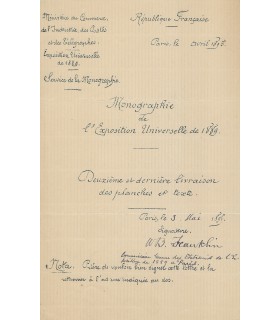 Ministère du Commerce,
de l'Industrie des Postes
et des Télégraphes.
Exposition Universelle
de 1889.
Service de la Monographie.
République Française
Paris, le avril
Monographie
de
l'Exposition Universelle de 1889.
Deuxième et dernière livraison
des planches et texte.
Paris, 3 Mai
Signature
W. D. Franklin
of 1889 à Paris.
Nota. Prière de vouloir bien signer cette lettre et la
retourner à l'adresse indiquée au dos.